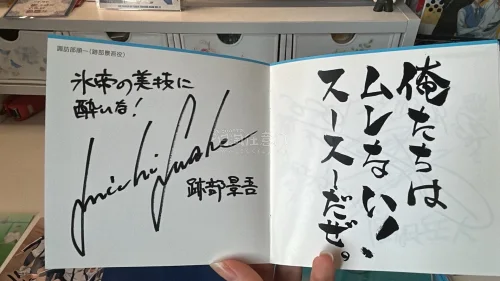 諏訪部順一(跡部景吾役)
氷帝の美技に
酔いな!
跡部景吾
俺たちは
ムレない!
スースーだぜ。